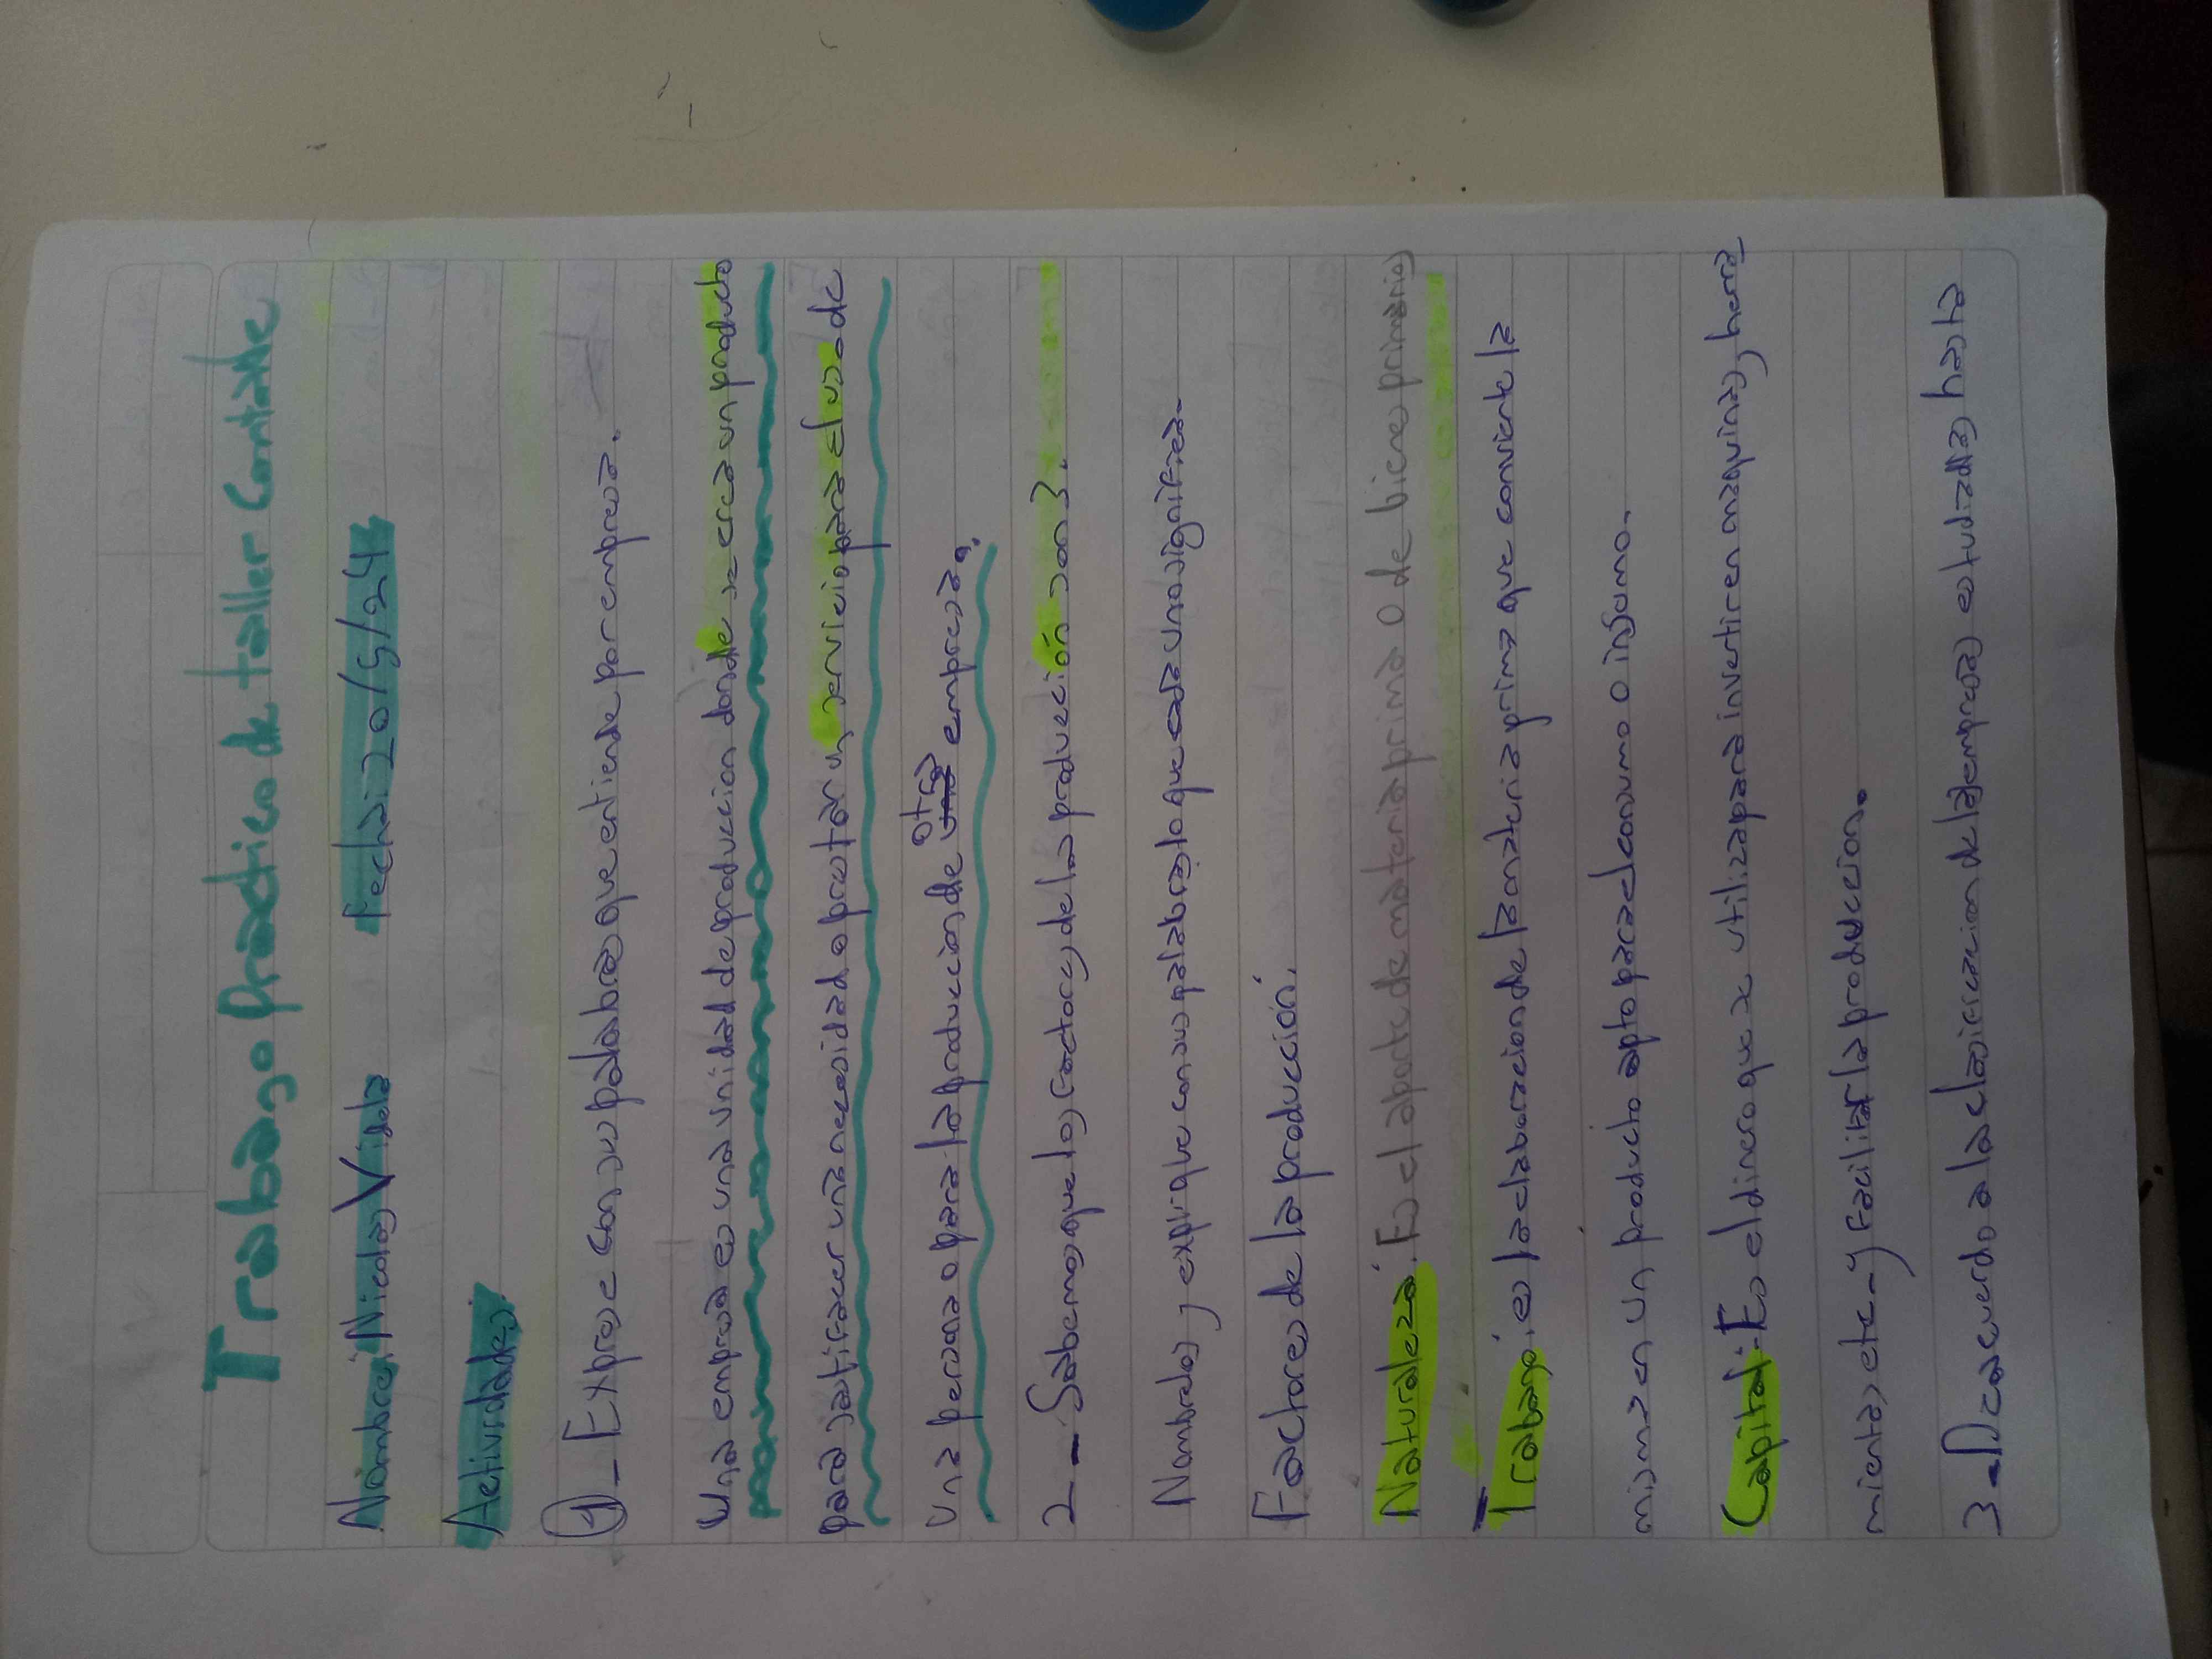 Trabago practico de taller Contable
Nombre: Nicolas Videla fecha: 20/9/24
Actividades:
1_ Exprese con sus palabras que entiende por empresa.
Una empresa es una unidad de produccion donde se crea un producto
para satisfacer una necesidad o prestar un servicio para el uso de
una persona o para la produccion de otra empresa.
2_ Sabemos que los factores de la producción son 3.
Nombrelos y explique con sus palabras lo que cada uno significa.
Factores de la producción.
Naturaleza: Es el aporte de materia prima o de bienes primarios
Trabajo: es la elaboracion de la materia prima que convierte la
misma en un producto apto para el consumo o insumo.
Capital: Es el dinero que se utiliza para invertir en maquinas, herra
mientas, etc_ y facilitar la produccion.
3_ De acuerdo a la clasificacion de las empresas estudiadas hasta